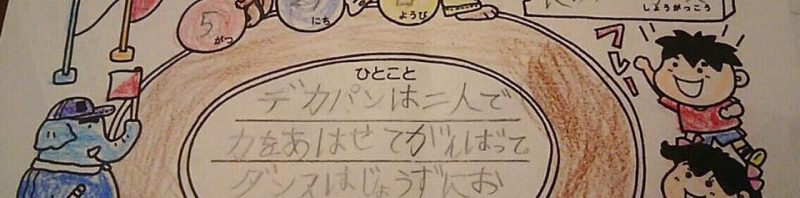 5
がつ
にち
ようび
しょうがっこう
フレー
ひとこと
デカパンは二人で
力をあはせてがんばって。
ダンスはじょうずにお